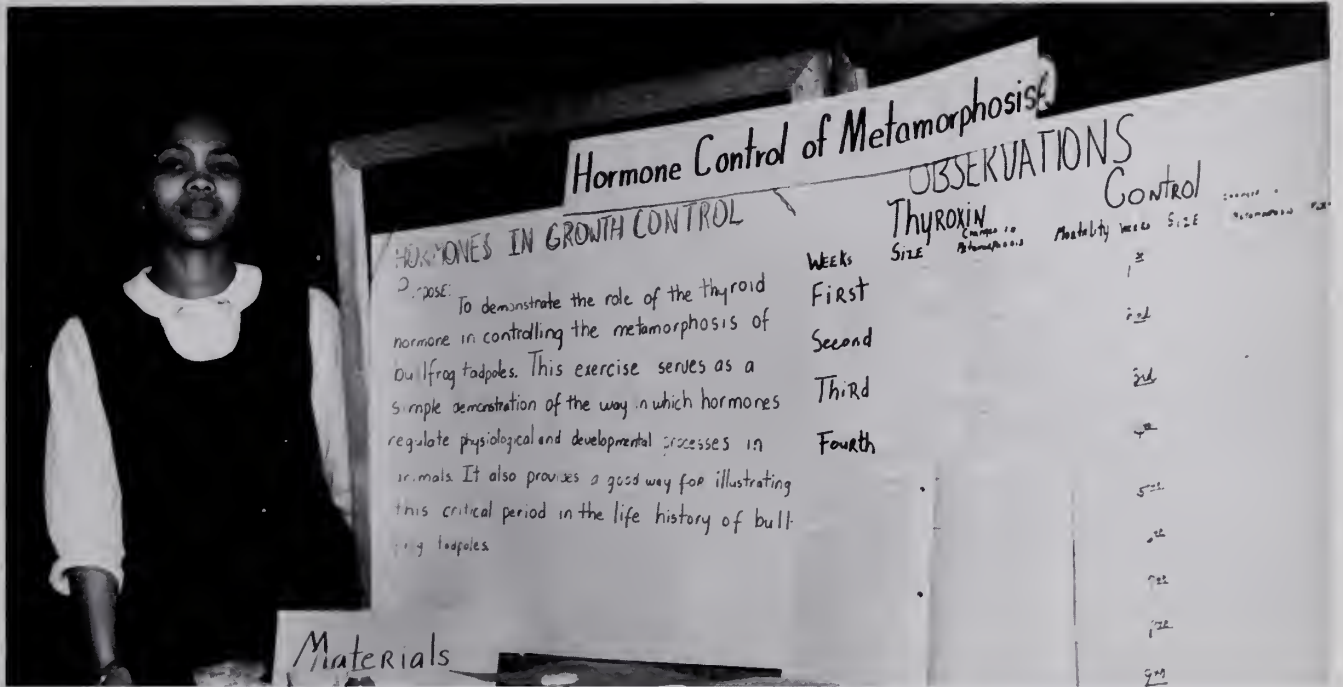 Hormone Control of Metamorphosis
HORMONES IN GROWTH CONTROL
To demonstrate the role of the thyroid
hormone in controlling the metamorphosis of
bullfrog tadpoles. This exercise serves as a
simple demonstration of the way in which hormones
regulate physiological and developmental processes in
animals. It also provides a good way for illustrating
this critical period in the life history of bull-
tadpoles.
Materials
OBSERVATIONS
Thyroxin
WEEKS SIZE Changes in Metamorphosis Mortality
First
Second
Third
Fourth
Control
Weeks SIZE
1st
2nd
3rd
4th
5th